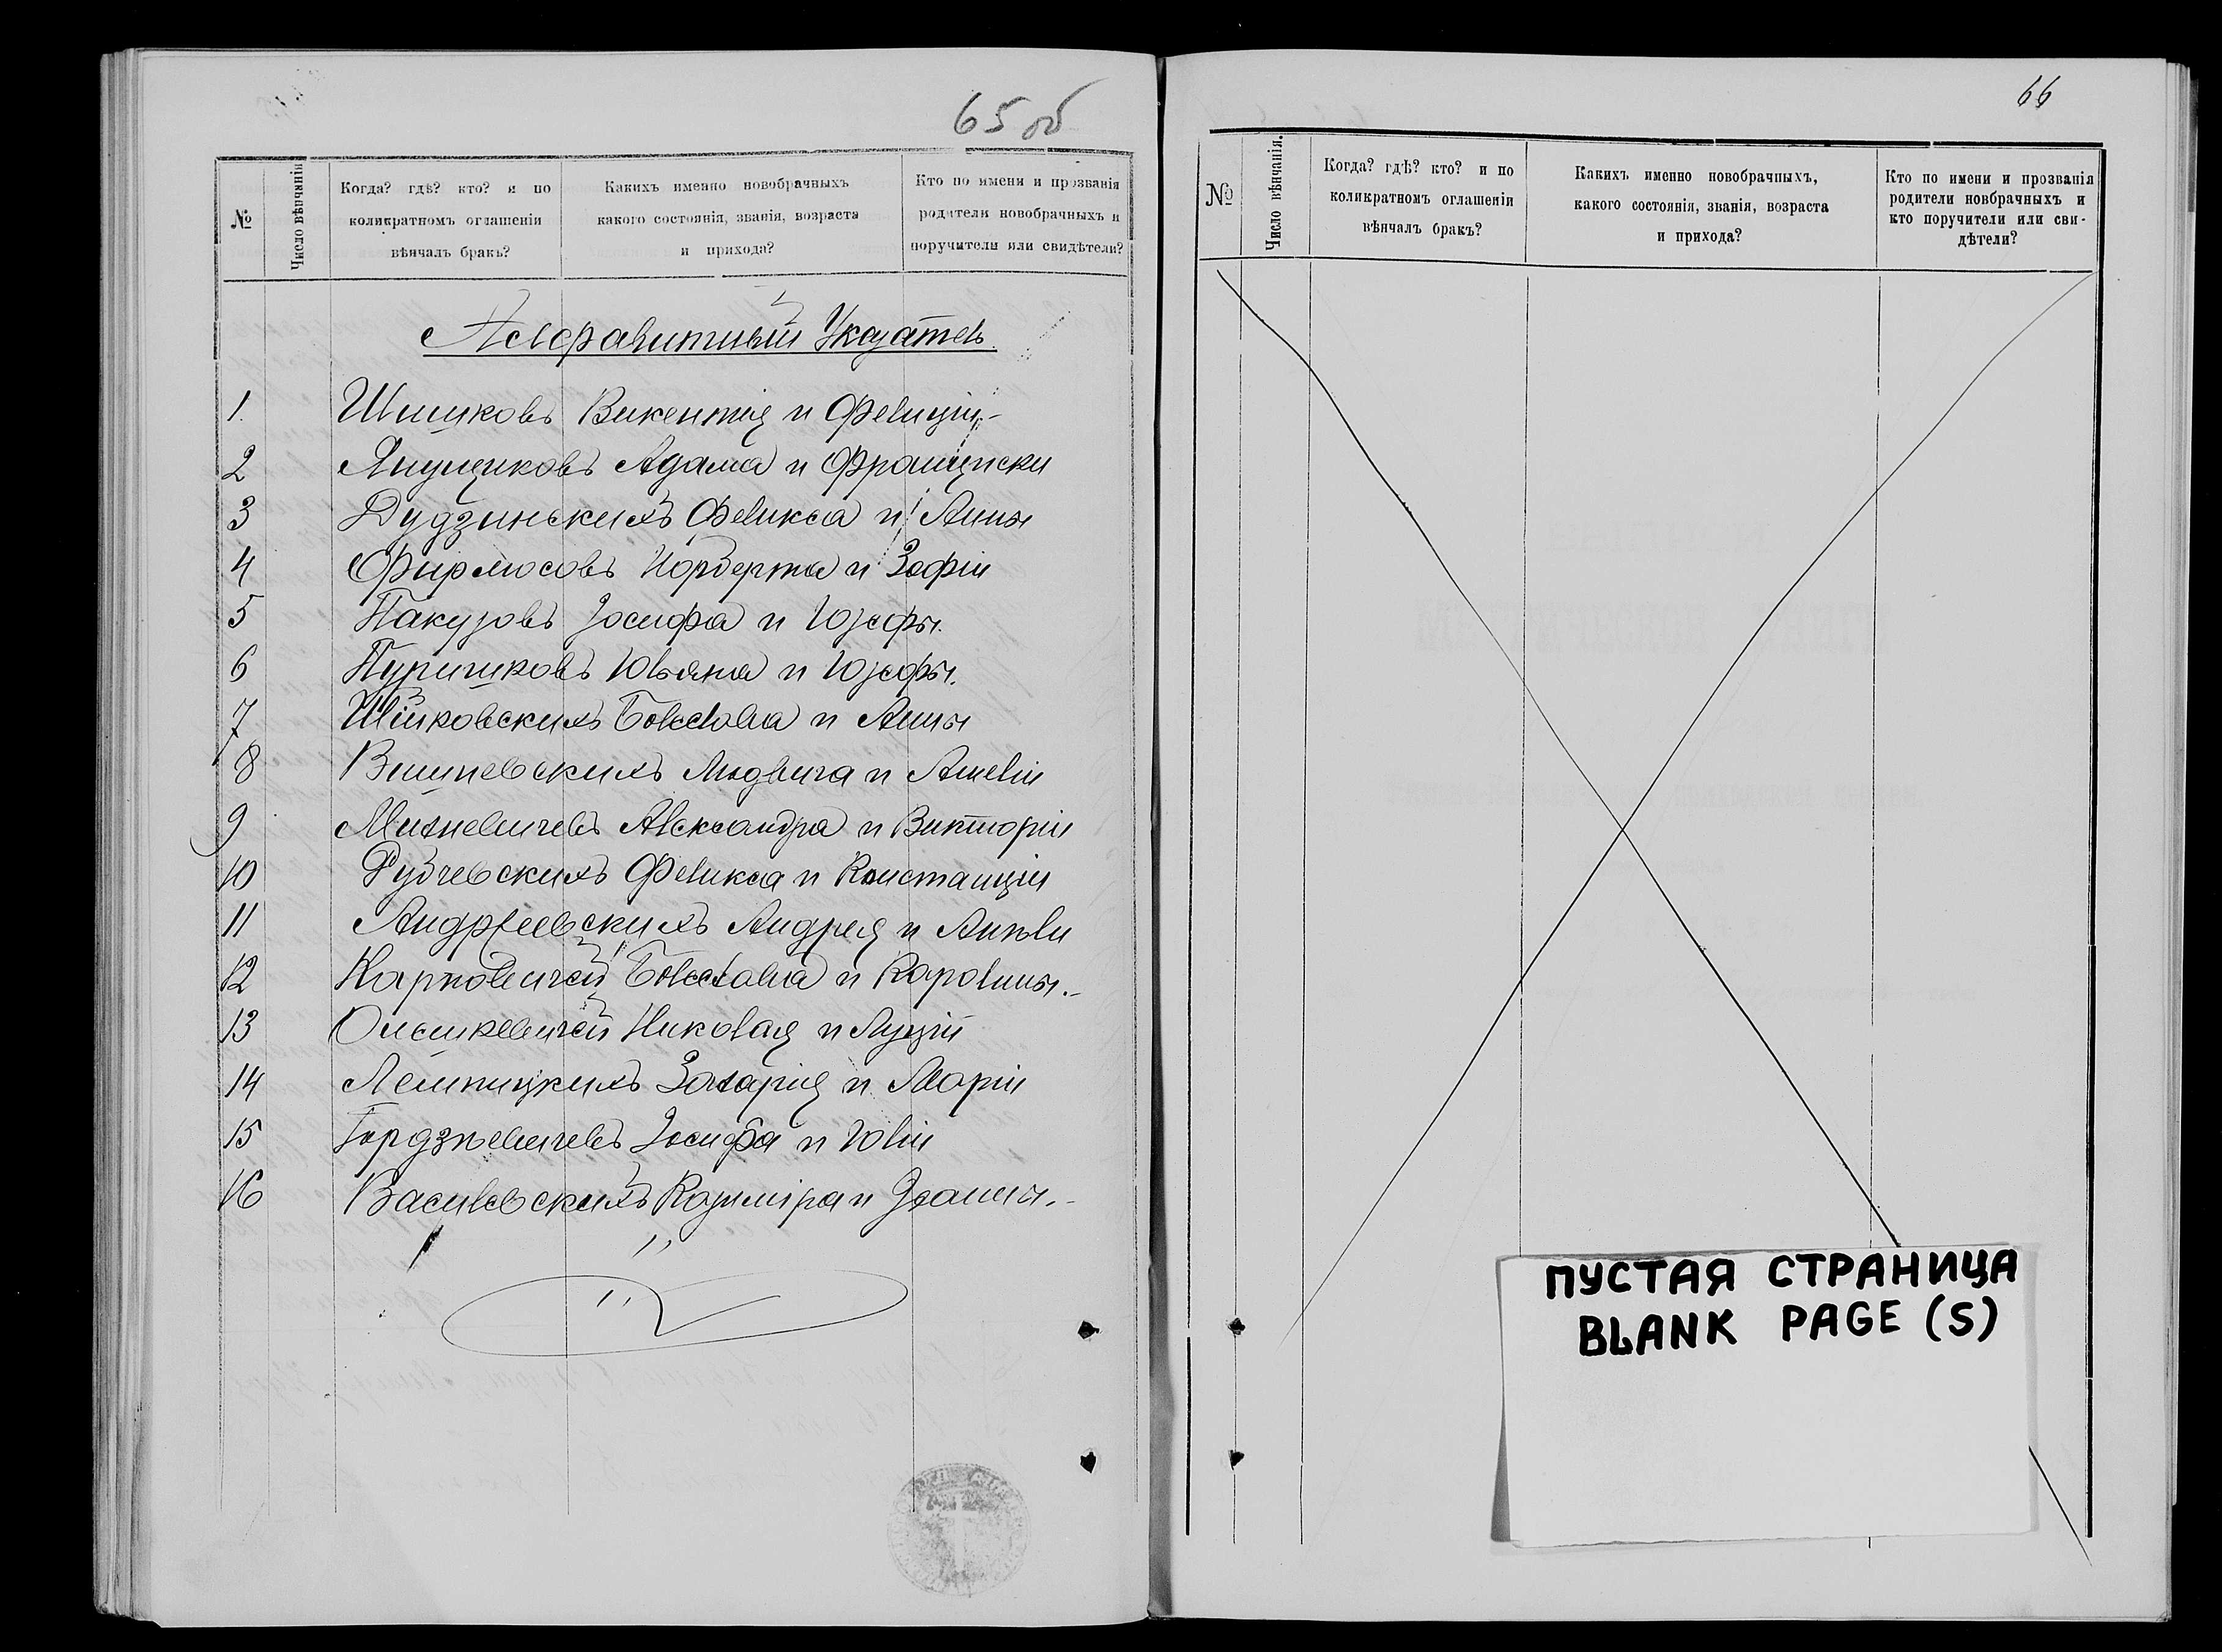 65 об
№
Число вѣнчанія
Когда? гдѣ? кто? и по
коликратномъ оглашеніи
вѣнчалъ бракъ?
Какихъ именно новобрачныхъ
какого состоянія, званія, возраста
и прихода?
Кто по имени и прозванія
родители новобрачныхъ и
поручители или свидѣтели?
Алфавитный Указатель
1. Шишковъ Викентія и Фелиціи.-
2 Янущиковъ Адама и Францишки
3 Дудзинскихъ Феликса и Анны
4 Фирлюсовъ Норберта и Зофіи
5 Пакузовъ Іосифа и Юзефы.
6 Пуришковъ Юльяна и Юзефы.
7 Болеслава и Анны
8 Вишневскихъ Людвига и Амеліи
9 Михневичевъ Александра и Викторіи
10 Феликса и Констанціи
11 Андржеевскихъ Андрея и Анѣли
12 Карповичей Болеслава и Каролины.-
13 Николая и Луціи
14 Захарія и Маріи
15 Іосифа и Юліи
16 Василевскихъ Казиміра и
66
№
Число вѣнчанія.
Когда? гдѣ? кто? и по
коликратномъ оглашеніи
вѣнчалъ бракъ?
Какихъ именно новобрачныхъ,
какого состоянія, званія, возраста
и прихода?
Кто по имени и прозванія
родители новбрачныхъ и
кто поручители или сви-
дѣтели?
ПУСТАЯ СТРАНИЦА
BLANK PAGE (S)